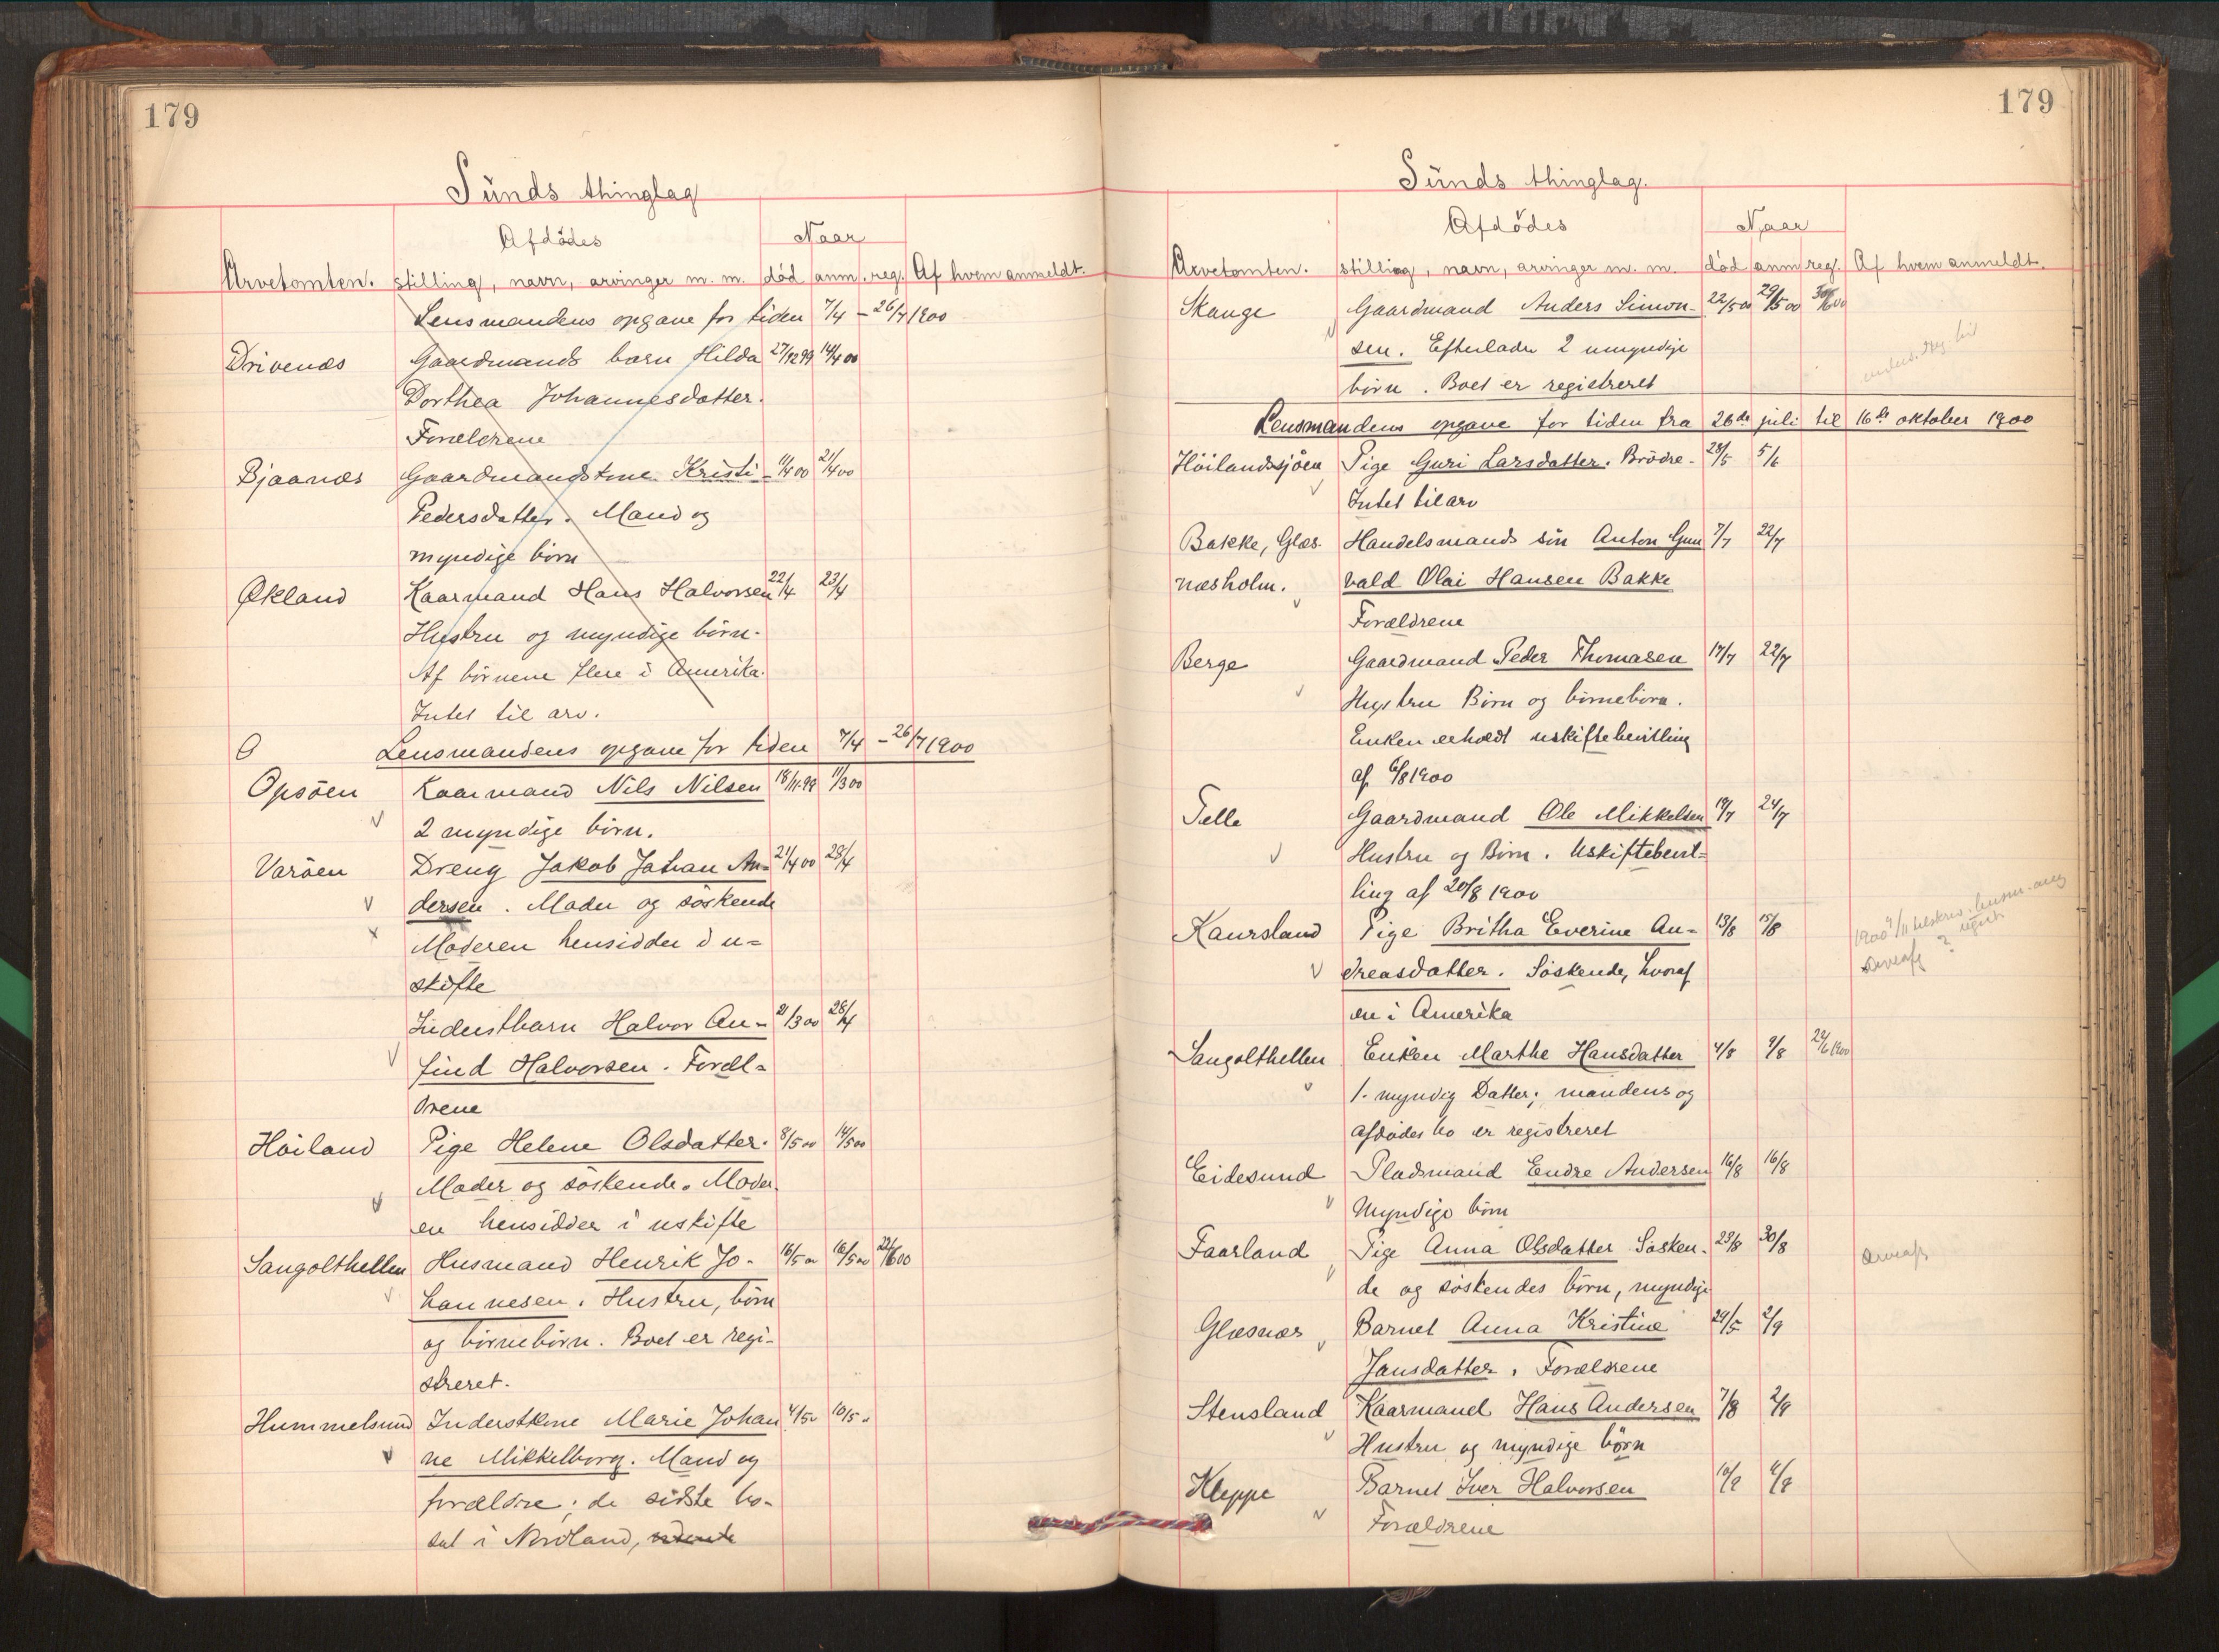 179
Sunds thinglag
Afdødes Naar
Arvetomten. stilling, navn, arvinger m. m. død anm. reg. Af hvem anmeldt.
Lensmandens opgave for tiden 7/4 - 26/7 1900
Drivenæs Gaardmands barn Hilda 27/12 99 14/4 00
Dorthea Johannesdatter.
Forældrene
Bjaanæs Gaardmandskone Kristi- 11/4 00 21/4 00
Pedersdatter. Mand og
myndige børn
Økland Kaarmand Hans Halvorsen 22/4 23/4
Hustru og myndige børn.
Af børnene flere i Amerika.
Intet til arv.
Lensmandens opgave for tiden 7/4 - 26/7 1900
Opsøen Kaarmand Nils Nilsen 18/11.99 11/3 00
2 myndige børn.
Varøen Dreng Jakob Johan An= 21/4 00 28/4
dersen. Moder og søskende
Moderen hensidder i u=
skifte
Inderstbarn Halvor An- 2/3 00 28/4
find Halvorsen. Foræl=
drene
Høiland Pige Helene Olsdatter. 8/5 00 14/5 00
Moder og søskende. Moder.
en hensidder i uskifte
Sangolthellen Husmand Henrik Jo- 16/5 00 16/5 00 22/6 00
hannesen. Hustru, børn
og børnebørn. Boet er regi-
streret.
Hummelsund Inderstkone Marie Johan 4/5 10/5
ne Mikkelborg. Mand og
forældre; de sidste bo-
sat i Nordland,
179
Sunds thinglag.
Afdødes Naar
Arvetomten. stilling, navn, arvinger m. m. død anm reg. Af hvem anmeldt.
Skauge Gaardmand Anders Simon- 22/5 00 29/5 00 30/6 00
sen. Efterlader 2 umyndige
børn. Boet er registreret
Lensmandens opgave for tiden fra 26de juli til 16de oktober 1900
Høilandssjøen Pige Guri Larsdatter. Brødre. 28/5 5/6
Intet til arv
Bakke, Glæs- Handelsmands søn Anton Gun 7/7 22/7
næsholm. vald Olai Hansen Bakke
Forældrene
Berge Gaardmand Peder Thomasen 17/7 22/7
Hustru Børn og børnebørn.
Enken erholdt uskiftebevilling
af 6/8 1900
Telle Gaardmand Ole Mikkelsen 19/7 24/7
Hustru og Børn. Uskiftebevil=
ling af 20/8 1900
Kaursland Pige Britha Everine An= 13/8 15/8
dreasdatter. Søskende, hvoraf
en i Amerika
Sangolthellen Enken Marthe Hansdatter 4/8 9/8 22/6 1900
1. myndig Datter; mandens og
afdødes bo er registreret
Eidesund Pladsmand Endre Andersen 16/8 16/8
Myndige børn
Faarland Pige Anna Olsdatter Søsken- 23/8 30/8
de og søskendes børn, myndige
Glæsnæs Barnet Anna Kristine 29/5 2/9
Jansdatter. Forældrene
Stensland Kaarmand Hans Andersen 7/8 2/9
Hustru og myndige børn
Kleppe Barnet Iver Halvorsen
Forældrene